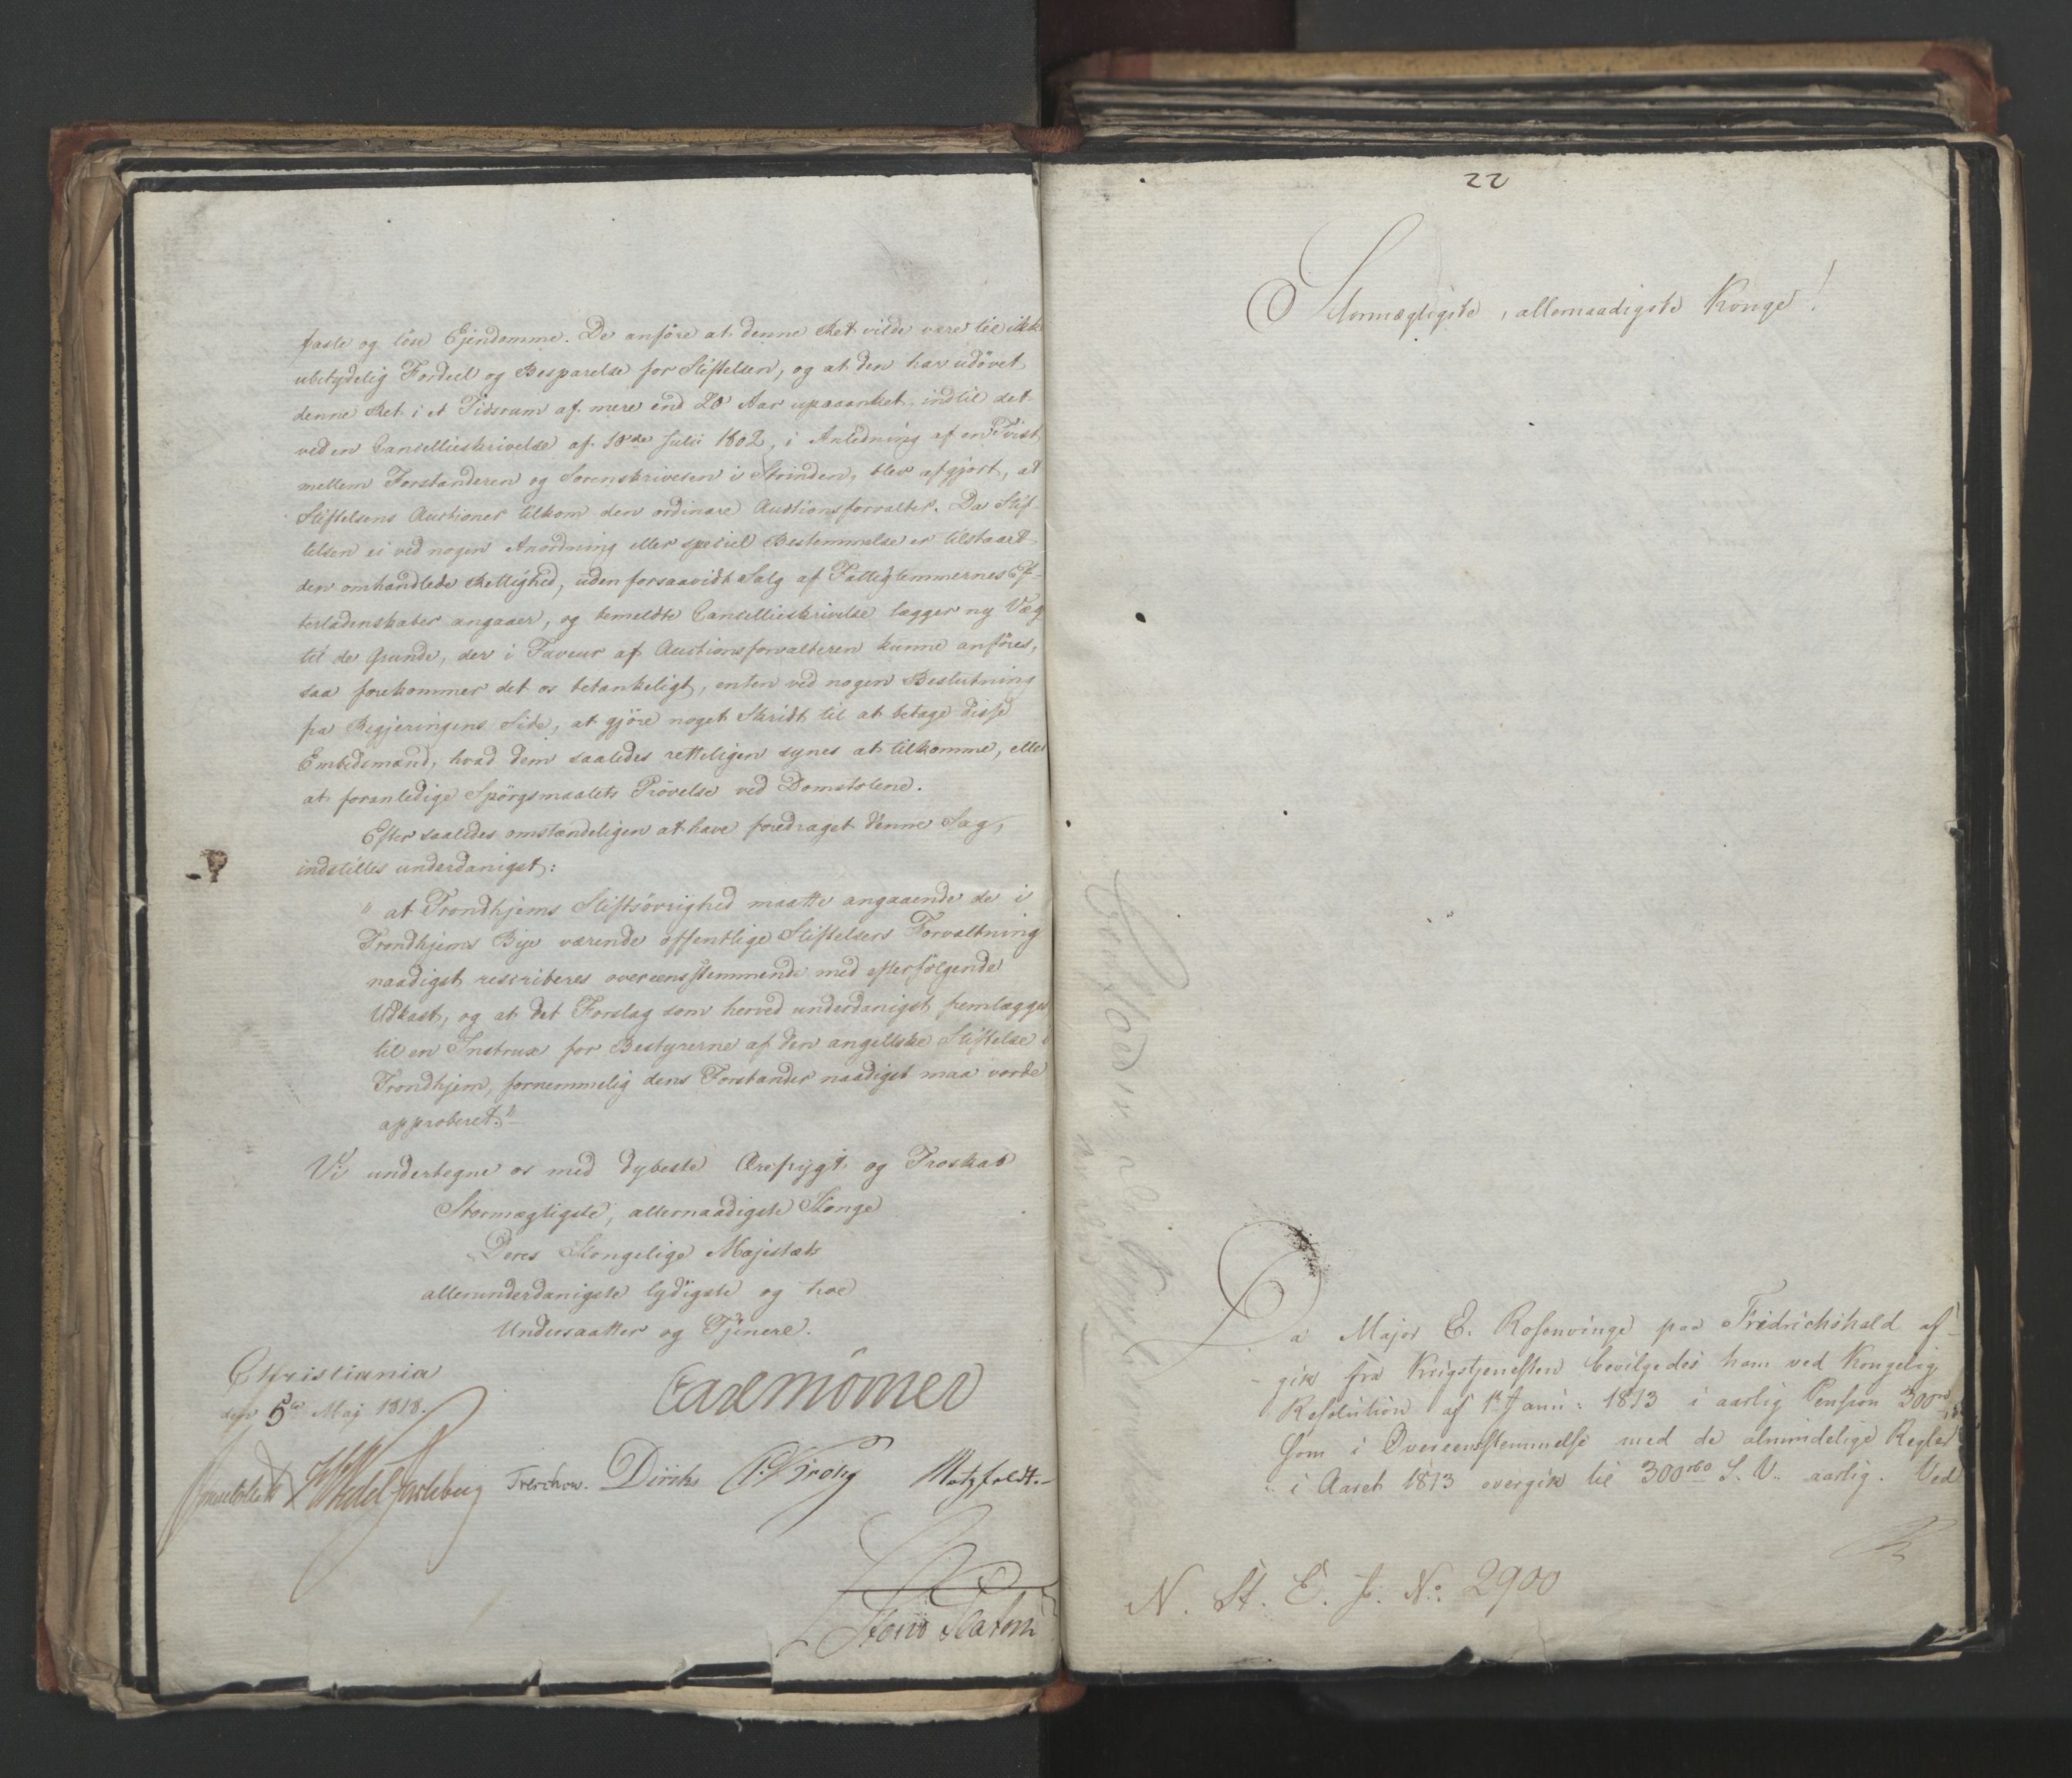 faste og löse Ejendomme. De anföre at denne Ret vilde være til ikke
ubetydelig Fordeel og Besparelse for Stiftelsen, og at den har udövet
denne Ret i et Tidsrum af mere end 20 Aar upaaanket, indtil det
ved en Cancelliesskrivelse af 10de Julii 1802, i Anledning af en Tvist
mellem Forstanderen og Sorenskriveren i Strinden, blev afgjort, at
Stiftelsens Auctioner tilkom den ordinære Auctionsforvalter. Da Stif-
telsen ei ved nogen Anordning eller speciel Bestemmelse er tilstaaet
den omhandlede Rettighed, uden forsaavidt Salg af Fattiglemmernes Ef-
terladenskaber angaaer, og bemeldte Cancellieskrivelse lægger ny Vægt
til de Grunde, der i Faveur af Auctionsforvalteren kunne anföres,
saa forekommer det os betænkeligt, enten ved nogen Beslutning
fra Regjeringens Side, at gjöre noget Skridt til at betage disse
Embedsmænd, hvad dem saaledes retteligen synes at tilkomme, eller
at foranledige Spörgsmaalets Prövelse ved Domstolene.
Efter saaledes omstændeligen at have foredraget denne Sag,
indstilles underdanigst:
" at Trondhjems Stiftsövrighed maatte angaaende de i
Trondhjems Bye værende offentlige Stiftelsers Forvaltning
naadigst rescriberes overeensstemmende med efterfölgende
Udkast, og at det Forslag som herved underdanigst fremlægges
til en Instrux for Bestyrerne af den angellske Stiftelse i
Trondhjem, fornemmelig dens Forstander naadigst maa vorde
approberet."
Vi undertegne os med dybeste Ærefrygt og Troskab
Stormægtigste, allernaadigste Konge
Deres Kongelige Majestæts
allerunderdanigste lydigste og troe
Undersaatter og Tjenere.
Christiania
den 5te Maj 1818.
Carl Mörner
Wedel Jarlsberg Treschow. Diriks C. Krohg Motzfeldt.
22
Stormægtigste, allernaadigste Konge!
Da Major E. Rosenvinge paa Fridrichshald af-
gik fra Krigstjenesten bevilgedes ham ved Kongelig
Resolution af 1te Janu: 1813 i aarlig Pension 300
som i Overeensstemmelse med de almindelige Regler
i Aaret 1813 overgik til 300 rbd S. V. aarlig. Ved
N. St. E. J. No: 2900